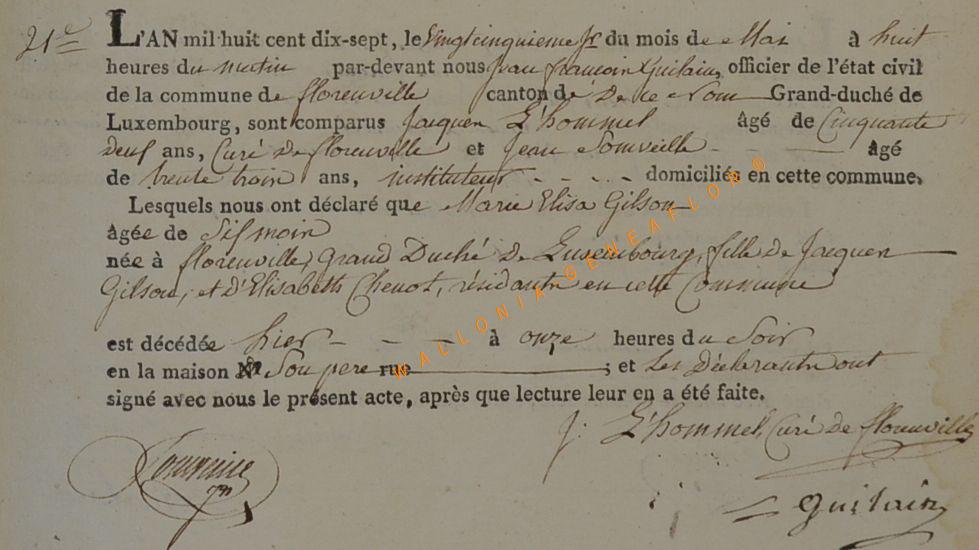 21e
L'AN mil huit cent dix-sept, le Vingt cinquieme Jr du mois de Mai à huit
heures du matin par-devant nous Jean françois Guilain, officier de l'état civil
de la commune de florenville canton de de ce nom Grand-duché de
Luxembourg, sont comparus Jacques L'hommel âgé de Cinquante
deux ans, Curé de florenville et Jean Somveille - - - âgé
de trente trois ans, instituteur - - - - domiciliés en cette commune.
Lesquels nous ont déclaré que Marie Elisa Gilson
âgée de Six mois
née à florenville, Grand Duché de Luxembourg, fille de Jacques
Gilson, et d'Elisabeth Chenot, résidants en cette Commune
est décédée hier - - - à onze heures du Soir
en la maison N° Son pere rue ; et les Déclarants ont
signé avec nous le présent acte, après que lecture leur en a été faite.
J: L'hommel, Curé de florenville
guilain
WALLONIA-GENEAFLOR®